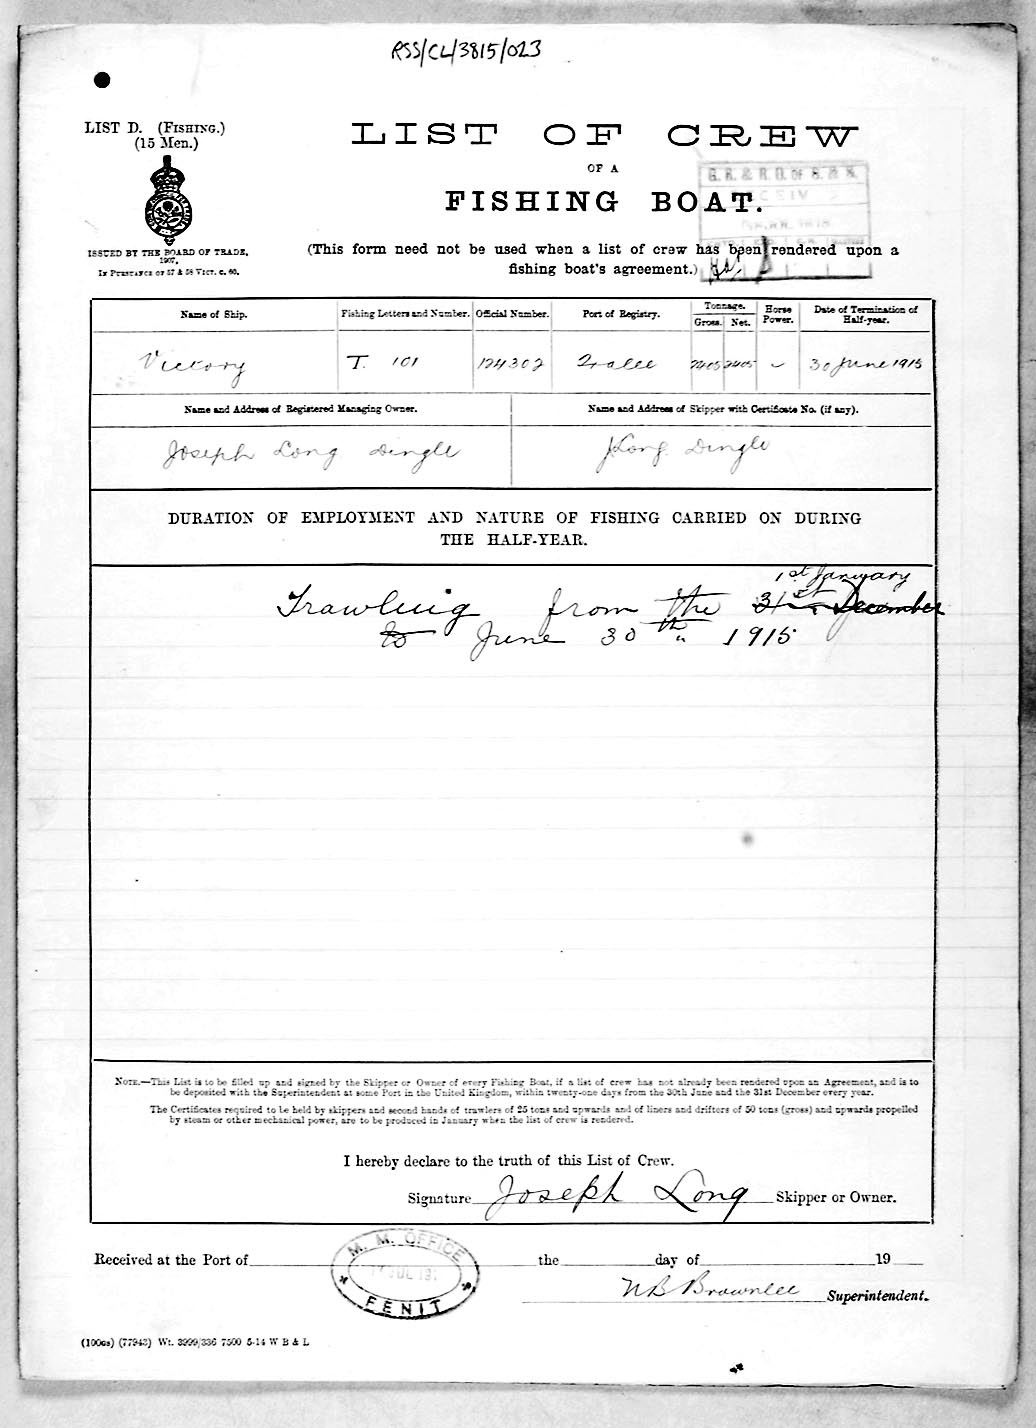 RSS/CL/3815/023
LIST D. (FISHING.)
(15 Men.)
ISSUED BY THE BOARD OF TRADE,
1907,
IN PURSUANCE OF 57 & 58 VICT. C. 60.
LIST OF CREW
OF A
FISHING BOAT.
G. R. & R. O. OF S. & S.
(This form need not be used when a list of crew has been rendered upon a
fishing boat's agreement.)
Name of Ship. Fishing Letters and Number. Official Number. Port of Registry. Tonnage. Gross. Net. Horse Power. Date of Termination of Half-year.
Victory T. 101 124302 Tralee 2405 2405 30 June 1915
Name and Address of Registered Managing Owner. Name and Address of Skipper with Certificate No. (if any).
Joseph Long Dingle J Long Dingle
DURATION OF EMPLOYMENT AND NATURE OF FISHING CARRIED ON DURING
THE HALF-YEAR.
1st January
Trawling from the 31st December
to June 30th 1915
NOTE.—This List is to be filled up and signed by the Skipper or Owner of every Fishing Boat, if a list of crew has not already been rendered upon an Agreement, and is to
be deposited with the Superintendent at some Port in the United Kingdom, within twenty-one days from the 30th June and the 31st December every year.
The Certificates required to be held by skippers and second hands of trawlers of 25 tons and upwards and of liners and drifters of 50 tons (gross) and upwards propelled
by steam or other mechanical power, are to be produced in January when the list of crew is rendered.
I hereby declare to the truth of this List of Crew.
Signature Joseph Long Skipper or Owner.
Received at the Port of the day of 19
M. M. OFFICE
JUL 191
FENIT
N B Brownlee Superintendent.
(100gs) (77943) Wt. 3999/336 7500 5-14 W B & L